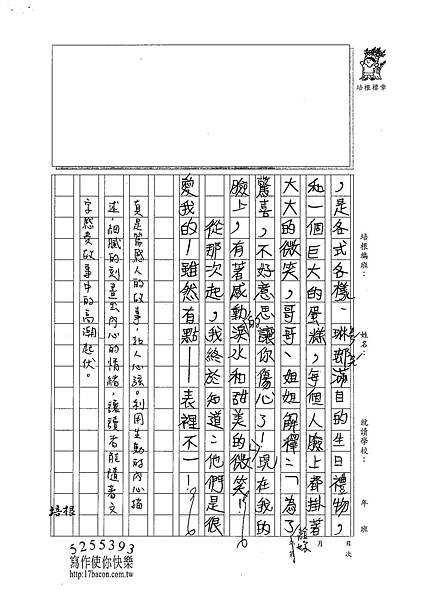 培根標章
培根編班：
姓名：
就讀學校：
年 班
年 月 日
第 次
，是各式各樣、琳瑯滿目的生日禮物，
和一個巨大的蛋糕，每個人臉上都掛著
大大的微笑，哥哥、姐姐解釋：「為了
驚喜，不好意思讓你傷心了！」現在我的
臉上，有著感動的淚水和甜美的微笑！
從那次起，我終於知道：他們是很
愛我的！雖然有點——表裡不一！
真是篇感人的故事，扣人心弦。利用生動的內心描
述，細膩的刻畫出內心的情緒，讓讀者能隨著文
字感受故事中的高潮起伏。
培根
5255393
寫作使你快樂
http://17bacon.com.tw